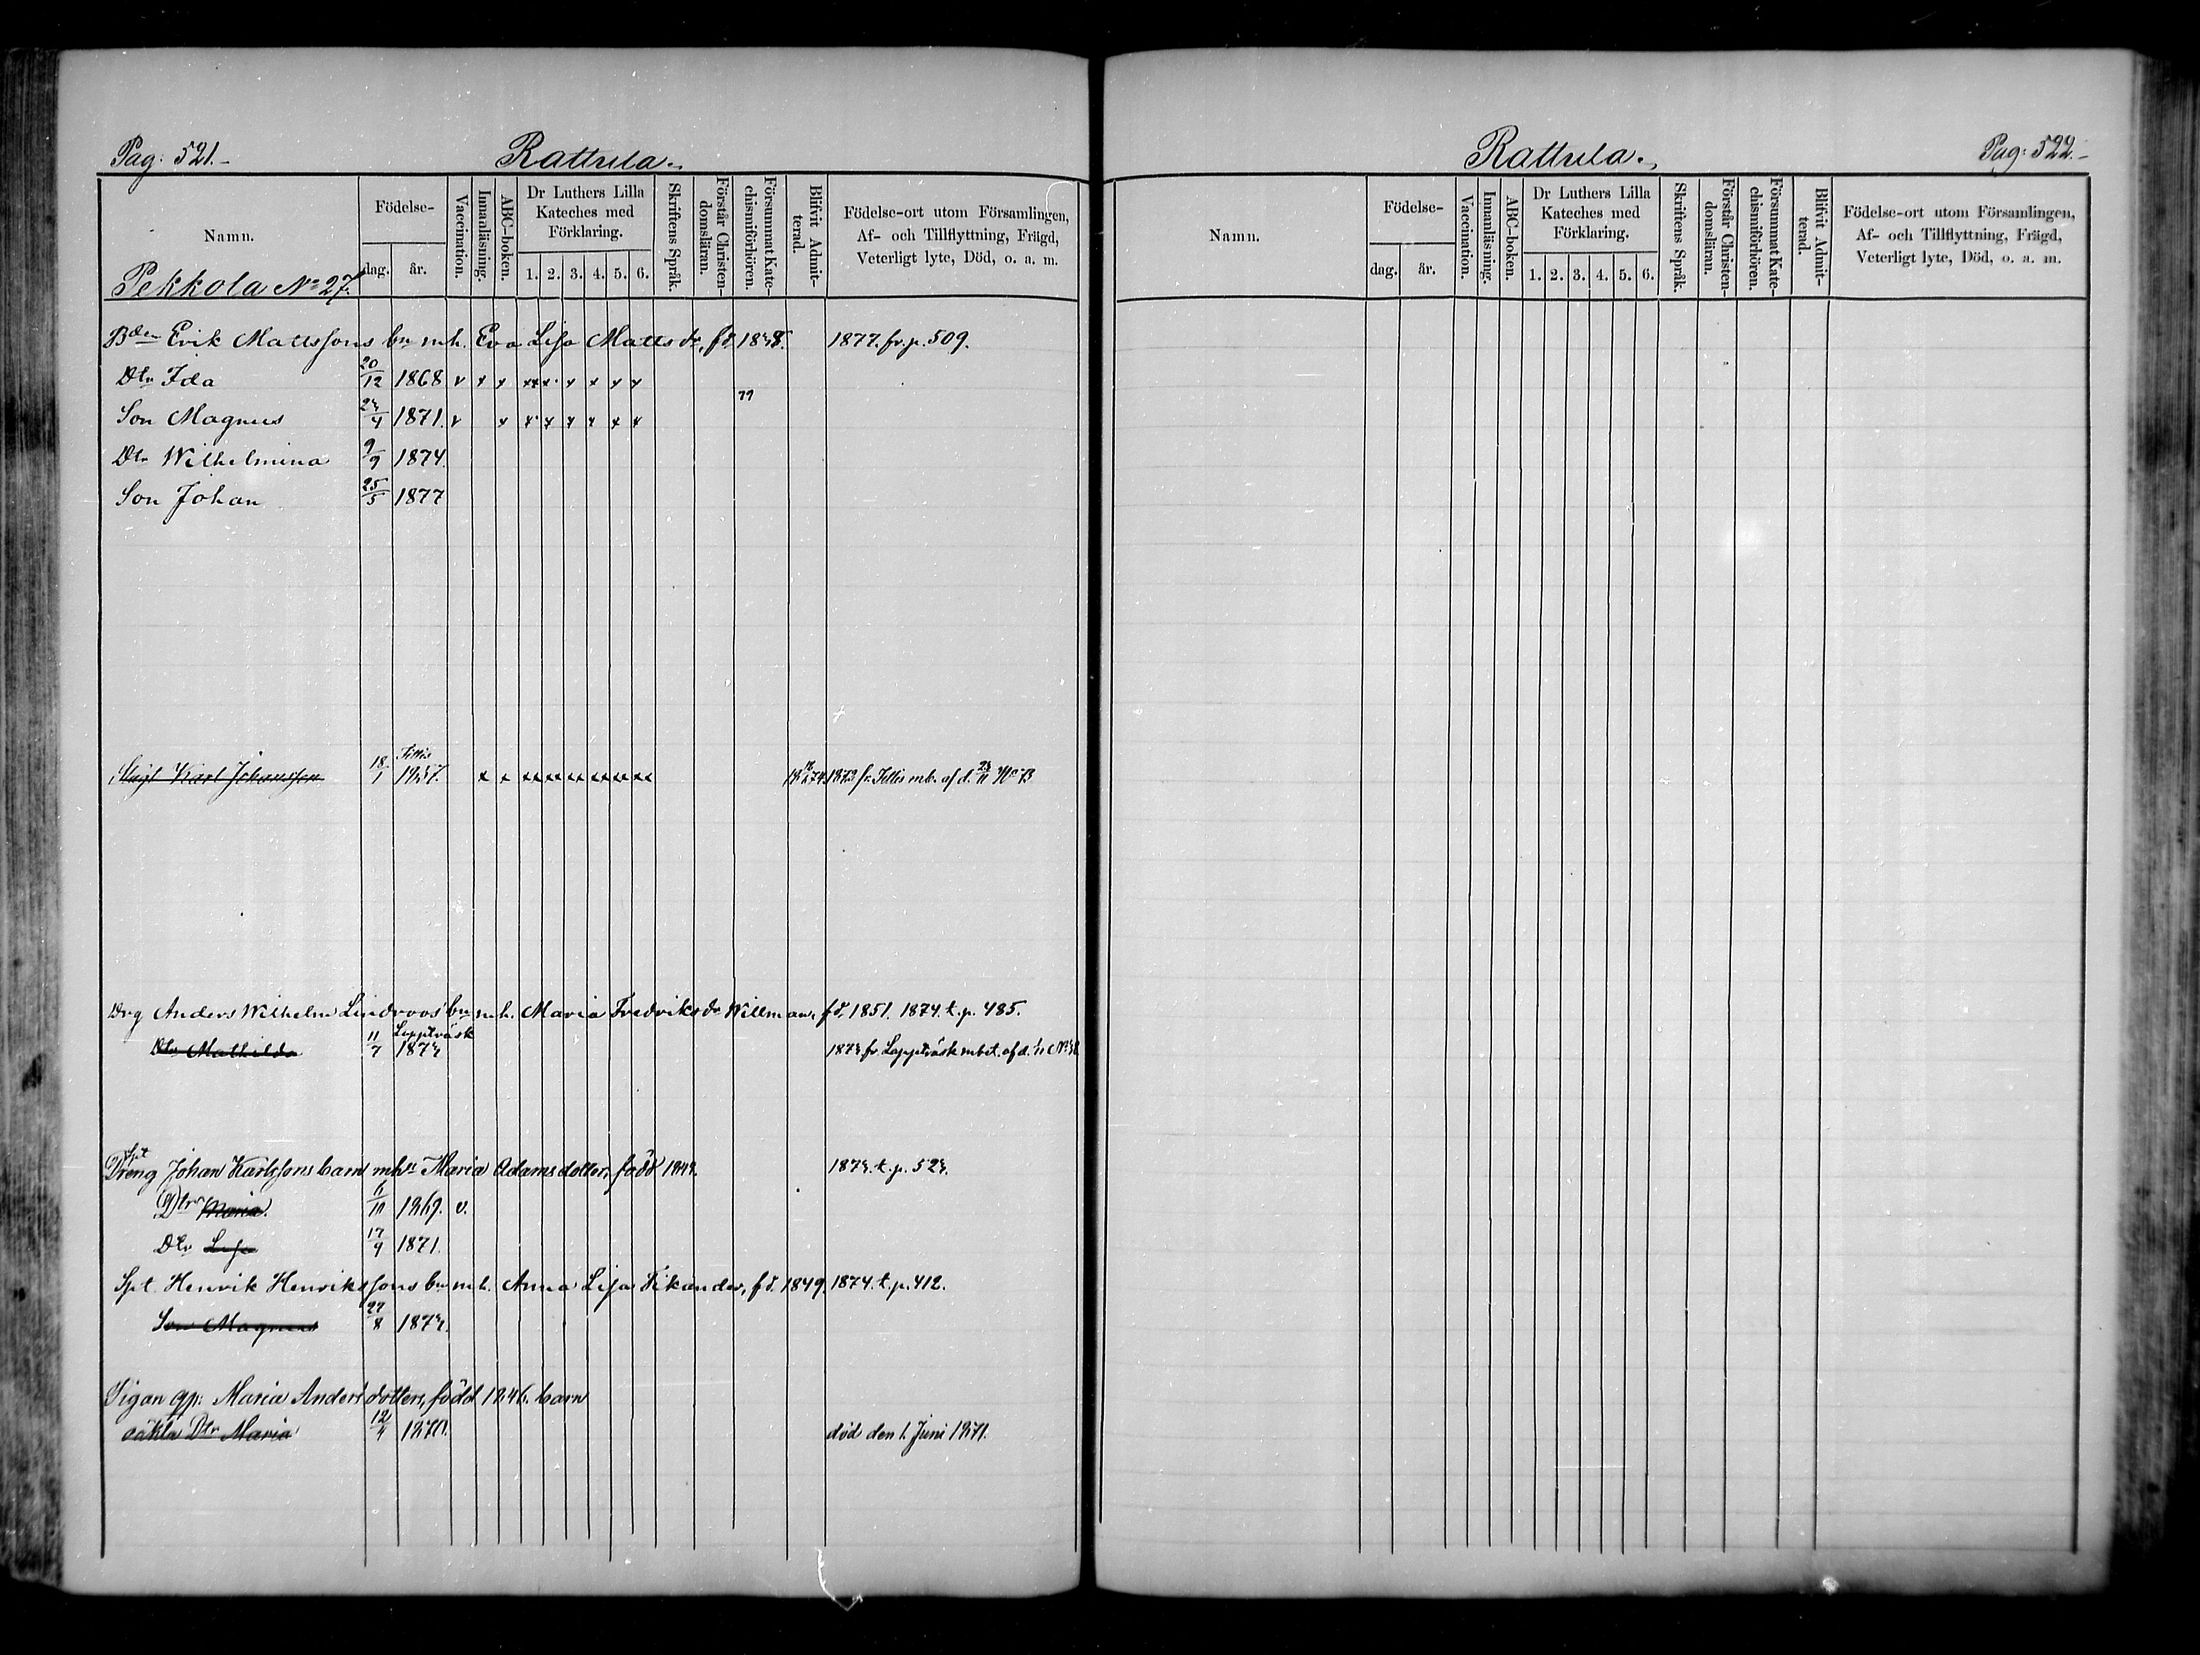 Pag: 521.-
Rattula.-
Namn.
Födelse-
dag. år.
Vaccination.
Innanläsning.
ABC-boken.
Dr Luthers Lilla Kateches med Förklaring.
1. 2. 3. 4. 5. 6.
Skriftens Språk.
Förstår Christendomsläran.
Försummat Katechismiförhören.
Blifvit Admitterad.
Födelse-ort utom Församlingen,
Af- och Tillflyttning, Frägd,
Veterligt lyte, Död, o. a. m.
Pekkola No 27.
Bden Erik Mattssons bn m h. Eva Lisa Mattsdr, fd. 1877. fr. p. 509.
Dtr Ida 20/12 1868 v x x xx x x x x x
77
Son Magnus 4 1871. v x x x x x x x
Dtr Wilhelmina 9/9 1874.
Son Johan 25/5 1877
Karl Johansson 18/1 1857. x x xx xx xx xx xx xx fr. mb. af d. No 73
Drg Anders Wilhelm Lindroos' bn m h. Maria Fredriksdr Willman, fd. 1851. 1874. t. p. 485.
Lappträsk
Dtr Mathilda 11/7 1873 1873 fr. Lappträsk mbet. af d.
Spt
Dreng Johan Karlssons barn mhu Maria Adamsdotter, född 1873. t. p. 523.
Dtr Maria. 6/10 1869. v.
Dtr Lisa 17/9 1871.
Spt. Henrik Henrikssons bn m h. Anna Lisa Sikander, fd. 1849. 1874. t. p. 412.
Son Magnus 8 1873.
Pigan Maria Andersdotters, född 1846. barn
oäkta Dtr Maria 12/4 1870. död den 1. Juni 1871.
Rattula.-
Pag: 522.-
Namn.
Födelse-
dag. år.
Vaccination.
Innanläsning.
ABC-boken.
Dr Luthers Lilla Kateches med Förklaring.
1. 2. 3. 4. 5. 6.
Skriftens Språk.
Förstår Christendomsläran.
Försummat Katechismiförhören.
Blifvit Admitterad.
Födelse-ort utom Församlingen,
Af- och Tillflyttning, Frägd,
Veterligt lyte, Död, o. a. m.